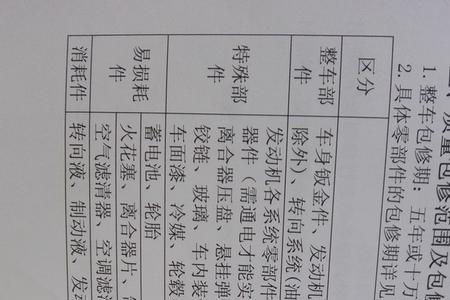 质量包修范围及包修
1. 整车包修期：五年或十万
2. 具体零部件的包修期详见
区分
整车部件
车身钣金件、发动机
除外）、转向系统（
特殊部件
发动机各系统零部件
器件（需通电才能实
离合器压盘、悬挂弹
铰链、玻璃、车内装
车面漆、冷媒、轮毂
易损耗件
蓄电池、轮胎
火花塞、离合器片、
空气滤清器、空调滤
消耗件
转向液、制动液、发动